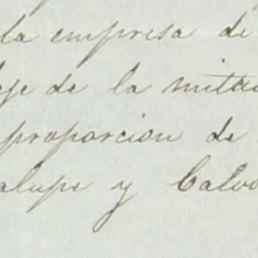 la empresa de
eje de la mitad
proporcion de
alupe y Calvo